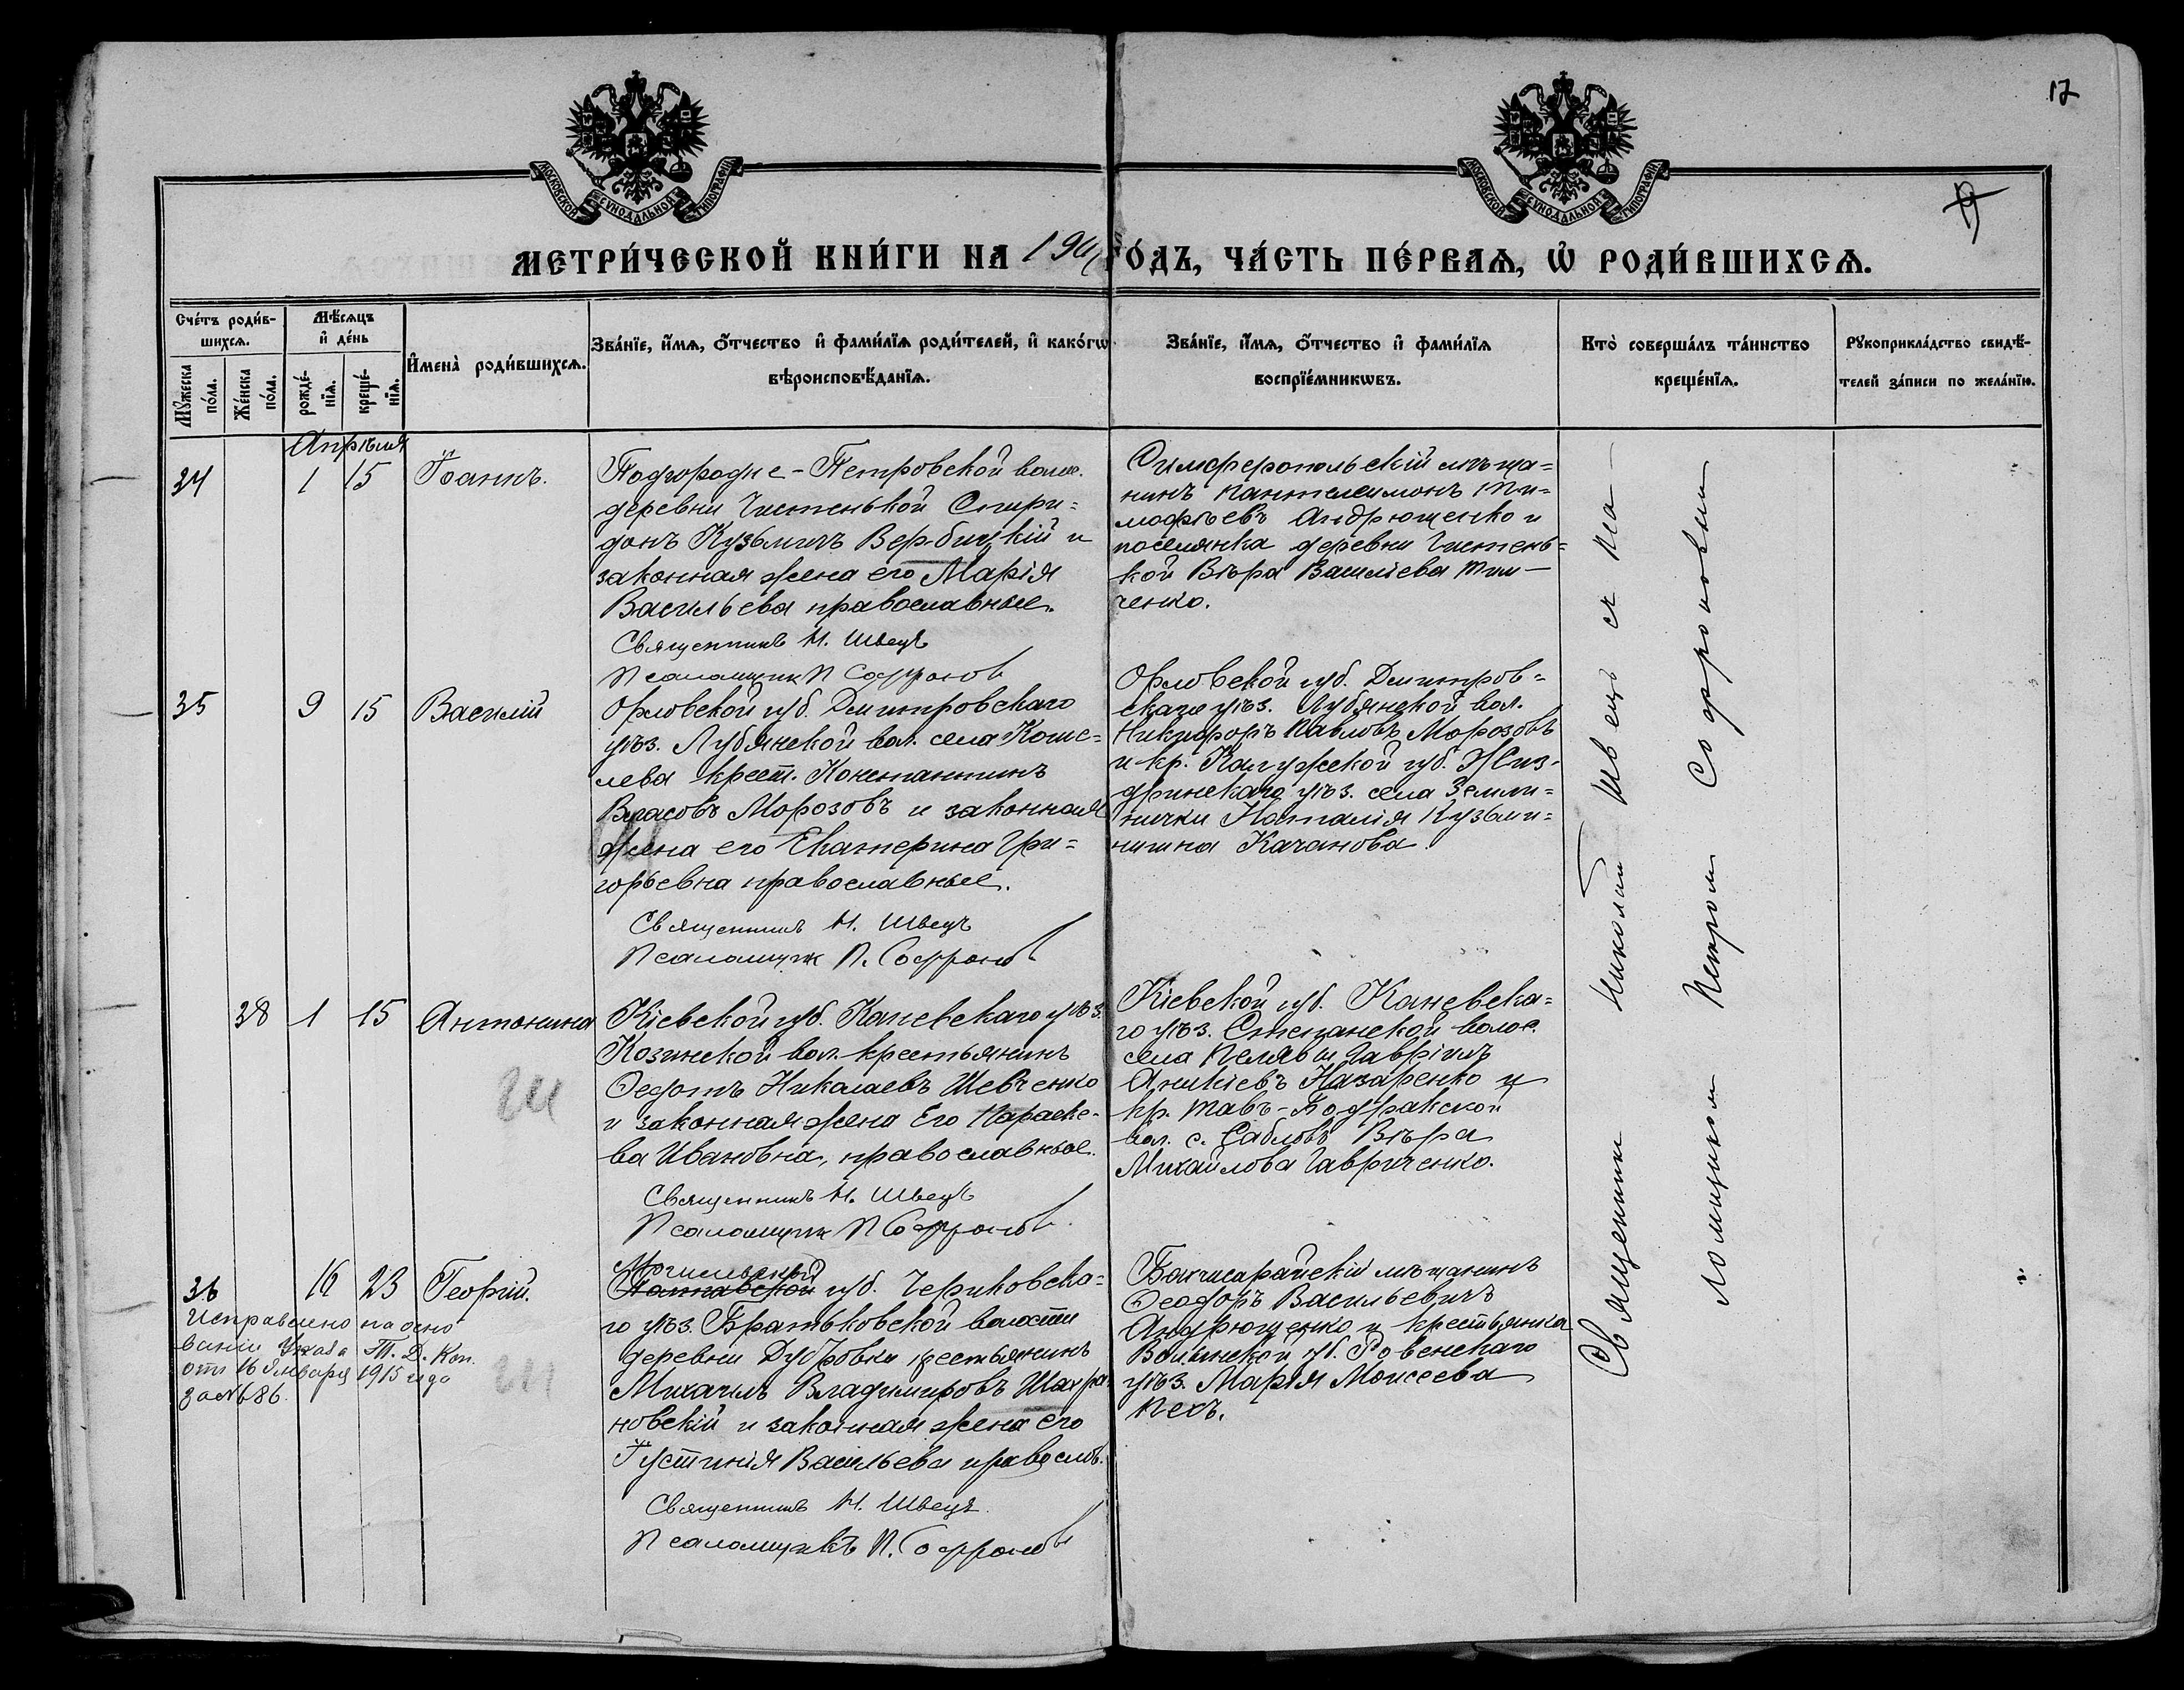 17
МОСКОВСКОЙ СѴНОДАЛЬНОЙ ТИПОГРАФІИ
МОСКОВСКОЙ СѴНОДАЛЬНОЙ ТИПОГРАФІИ
МЕТРИ́ЧЕСКОЙ КНИ́ГИ НА 1911 ГО́ДЪ, ЧА́СТЬ ПЕ́РВАѦ, Ѡ҆ РОДИ́ВШИХСѦ.
Сче́тъ роди́в-
шихсѧ.
Мꙋжеска по́ла.
Же́нска по́ла.
Мѣ́сѧцъ
и҆ де́нь
рожде́-
нїѧ.
креще́-
нїѧ.
И҆мена̀ роди́вшихсѧ.
Зва́нїе, и҆́мѧ, ѻ҆́тчество и҆ фами́лїѧ роди́телей, и҆ како́гѡ
вѣроисповѣ́данїѧ.
Зва́нїе, и҆́мѧ, ѻ҆́тчество и҆ фами́лїѧ
воспрїе́мникѡвъ.
Кто̀ соверша́лъ та́инство
креще́нїѧ.
Рꙋкоприкла́дство свидѣ́-
телей за́писи по жела́нїю.
Апрѣля
34 1 15 Іоаннъ.
Подгородне-Петровской волос.
деревни Чистенькой Спири=
донъ Кузьмичъ Вербицкій и
законная жена его Марія
Васильева православные.
Священникъ Н. Швецъ
Псаломщик П Софронов
Симферопольскій мѣща=
нинъ Пантелеимонъ Ти=
мофѣевъ Андрющенко и
поселянка деревни Чистень=
кой Вѣра Василіева Тим-
ченко.
35 9 15 Василій
Орловской губ. Дмитровскаго
уѣз. Лубянской вол. села Коше=
лева крест. Константинъ
Власовъ Морозовъ и законная
жена его Екатерина Гри=
горьевна православные.
Священникъ Н. Швецъ
Псаломщик П. Софронов
Орловской губ. Дмитров=
скаго уѣз. Лубянской вол.
Никифоръ Павловъ Морозовъ
и кр. Калужской губ. Жиз-
дринскаго уѣз. села Земли=
нички Наталія Кузьми=
нишна Качанова.
38 1 15 Антонина
Кіевской губ. Каневскаго уѣз.
Козинской вол. крестьянинъ
Ѳедотъ Николаевъ Шевченко
и законная жена его Параске-
ва Ивановна, православные.
Священникъ Н. Швецъ
Псаломщик П Софронов
Кіевской губ. Каневска=
го уѣз. Степанской волос.
села Гавріилъ
Аникіевъ Назаренко и
кр. Тавъ-Бодракской
вол. с. Сабловъ Вѣра
Михайлова Гавриченко.
36 16 23 Георгій.
Могилевской
Полтавской губ. Чериковска=
го уѣз. Братьковской волости
деревни Дубровки крестьянинъ
Михаилъ Владимировъ Шахра-
новскій и законная жена его
Іустинія Васильева правослов.
Священникъ Н. Швецъ.
Псаломщикъ П. Софронов
Исправлено на осно
ваніи Указа Т. Д. Кон.
отъ 16 Января 1915 года
за № 86.
Бахчисарайскій мѣщанинъ
Ѳеодоръ Васильевичъ
Андрющенко и крестьянка
Волынской губ. Ровенскаго
уѣз. Марія Моисеева
Пехъ.
Священникъ Николай Швецъ съ пса-
ломщикомъ Петромъ Софроновымъ